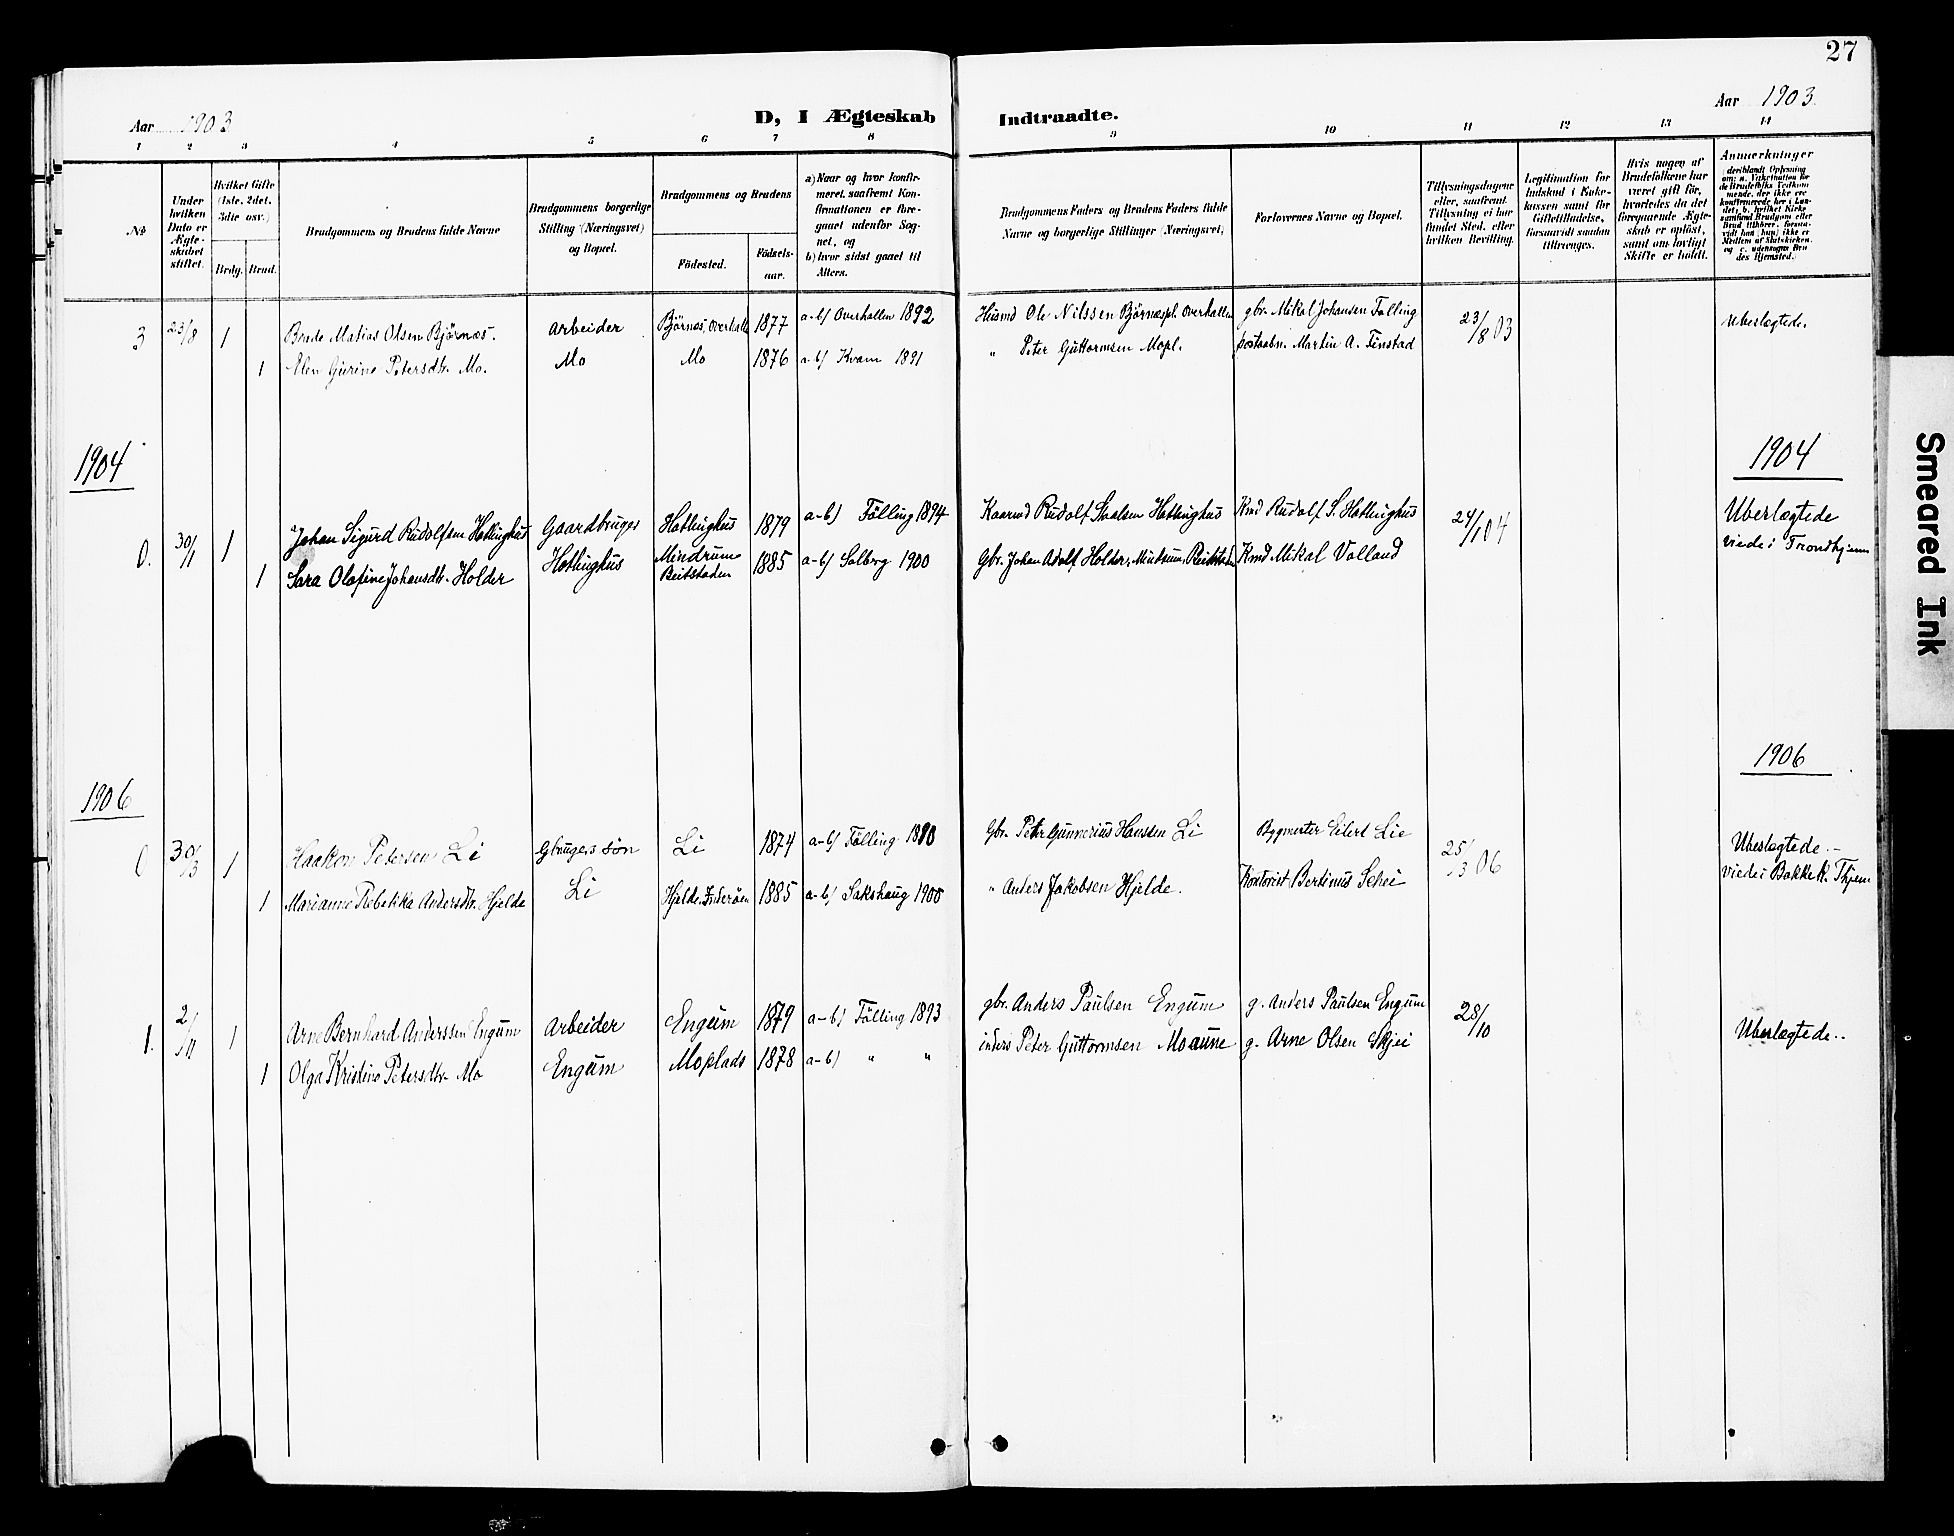 27
Aar 1903
D, I Ægteskab Indtraadte.
Aar 1903.
1 2 3 4 5 6 7 8 9 10 11 12 13 14
№
Under hvilken Dato er Ægteskabet stiftet.
Hvilket Gifte (1ste, 2det, 3die osv.)
Brdg. Brud.
Brudgommens og Brudens fulde Navne
Brudgommens borgerlige Stilling (Næringsvei) og Bopæl.
Brudgommens og Brudens
Fødested.
Fødselsaar.
a) Naar og hvor konfirmeret, saafremt Konfirmationen er foregaaet udenfor Sognet, og
b) hvor sidst gaaet til Alters.
Brudgommens Faders og Brudens Faders fulde Navne og borgerlige Stillinger (Næringsvei)
Forlovernes Navne og Bopæl.
Tillysningsdagene eller, saafremt Tillysning ei har fundet Sted, efter hvilken Bevilling.
Legitimation for Indskud i Enkekassen samt for Giftetilladelse, forsaavidt saadan tiltrænges.
Hvis nogen af Brudefolkene har været gift før, hvorledes da det foregaaende Ægteskab er opløst, samt om lovligt Skifte er holdt.
Anmærkninger
3 23/8 1 Brude Matias Olsen Bjørnæs. Arbeider Bjørnæs, Overhalle 1877 a-b) Overhallen 1892 Husmd Ole Nilssen Bjørnæspl. Overhallen gbr. Mikal Johansen Følling 23/8 03 Ubeslægtede.
1 Elen Gurine Petersdtr. Mo. Mo Mo 1876 a-b) Kvam 1891 " Peter Guttormsen Mopl. postaabn. Martin A. Finstad
1904
1904
0. 30/1 1 Johan Sigurd Rudolfsen Hatlinghus Gaardbruger Hatlinghus 1879 a-b) Følling 1894 Kaarmd Rudolf Hatlinghus Kmd Rudolf S. Hatlinghus 24/1 04 Ubeslægtede
viede i Trondhjem
1 Sara Olafine Johansdtr. Holder Hatlinghus Mindrum Beitstaden 1885 a-b) Solberg 1900 Gbr. Johan Adolf Holder, Mindrum, Beitstaden Kmd. Mikal Valland
1906
1906
0 30/3 1 Haakon Petersen Li Gbrugers søn Li 1874 a-b) Følling 1890 Gbr. Peter Gunnerius Hanssen Li Bygmester Eilert Lie 25/3 06 Ubeslægtede.-
viede i Bakke K. Thjem
1 Marianne Rebekka Andersdtr. Hjelde Li Hjelde, Inderøen 1885 a-b) Sakshaug 1900 " Anders Jakobsen Hjelde. Kontorist Bertinus Schei
1. 2/11 1 Arne Bernhard Anderssen Engum Arbeider Engum 1879 a-b) Følling 1893 gbr. Anders Paulsen Engum g. Anders Paulsen Engum 28/10 Ubeslægtede..
1 Olga Kristine Petersdtr. Mo Engum Moplads 1878 a-b) " " inders Peter Guttormsen Moaune g. Arne Olsen Skjei
Smeared Ink